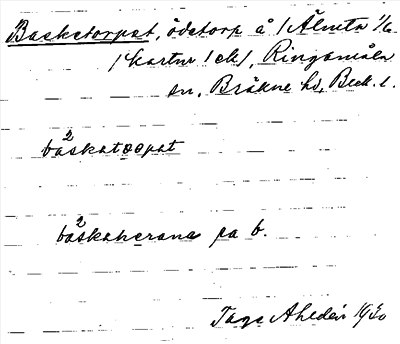 Basketorpet, ödetorp å / Älmta 1/6
/ kartar / ek /, Ringamåla
sn, Bräkne hd, Blek. l.
bá2skatoʀpat
bá2skaherana pa b.
Tage Ahldén 1930